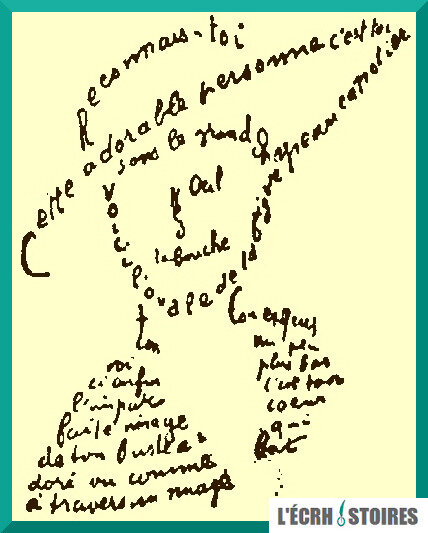 Reconnais-toi
Cette adorable personne c'est toi
sous le grand chapeau canotier
Oeil
Nez
la bouche
Voici l'ovale de ta figure
ton
Cou exquis
voi
ci enfin
l'imparfaite image
de ton buste a
doré vu comme
à travers un nuage
un peu
plus bas
c'est ton
coeur
qui
bat
L'ÉCRH STOIRES